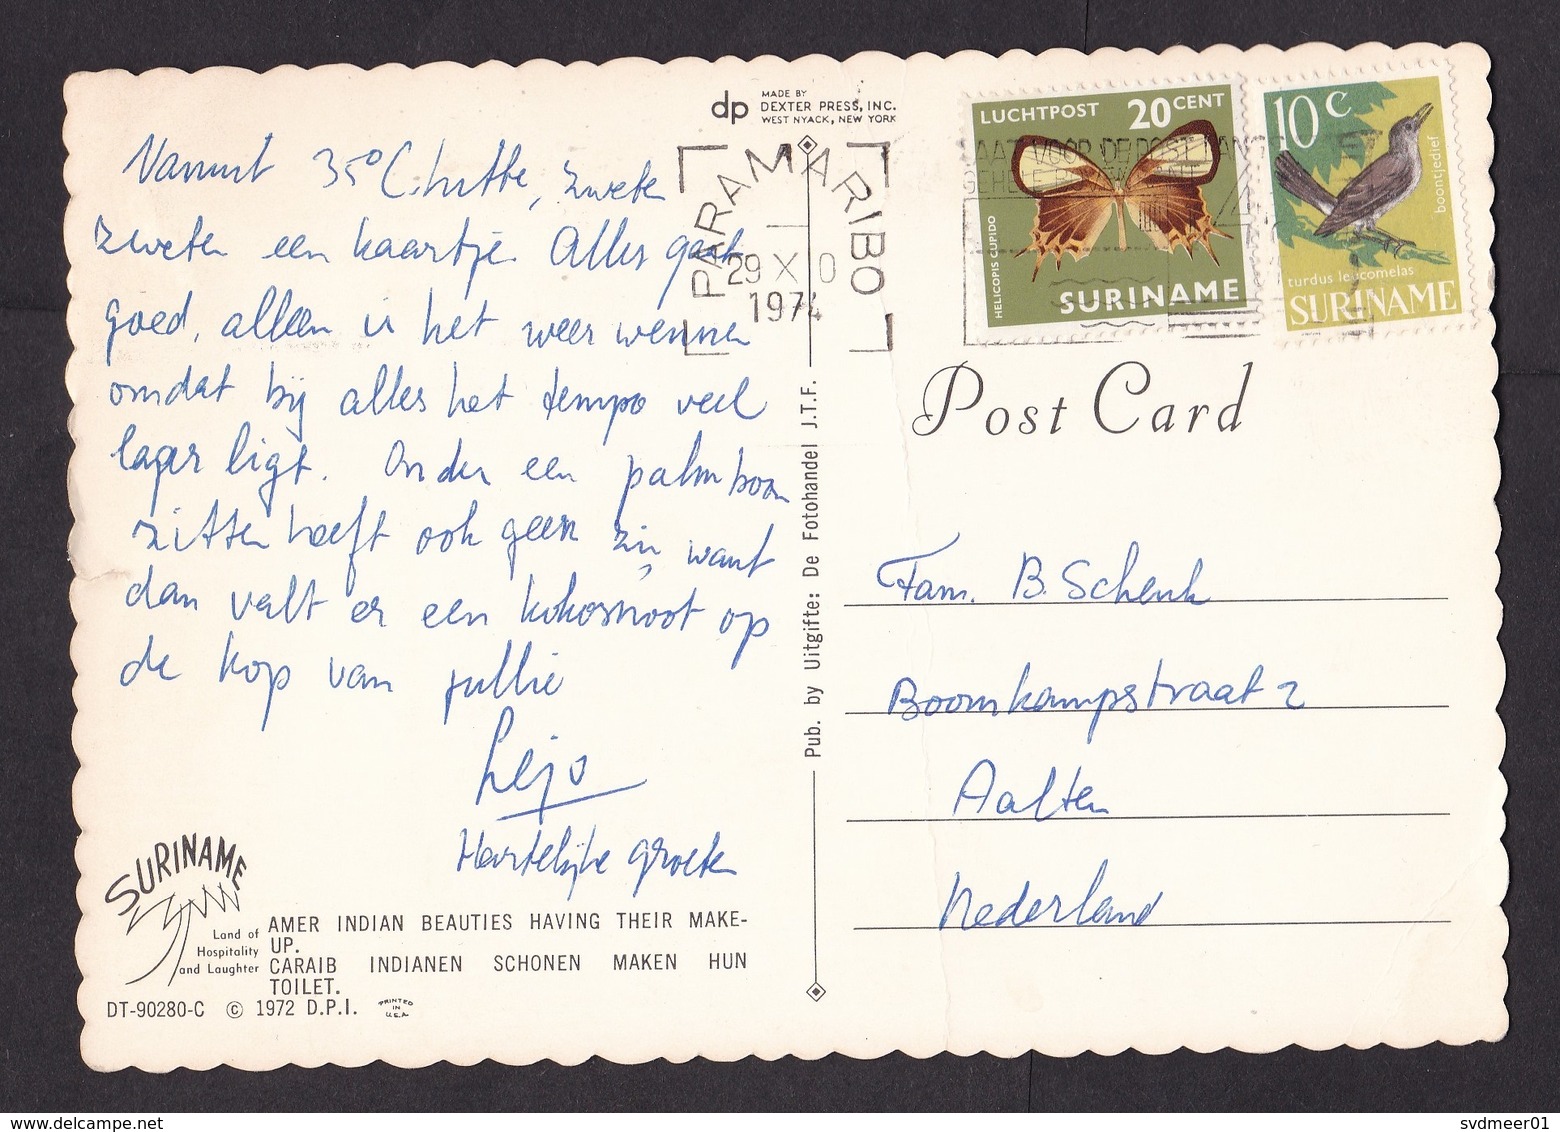 dp MADE BY
DEXTER PRESS, INC.
WEST NYACK, NEW YORK
Vanuit 35°C hitte, zwete
zweten een kaartje. Alles gaat
goed, alleen is het weer wennen
omdat bij alles het tempo veel
lager ligt. Onder een palmboom
zitten heeft ook geen zin want
dan valt er een kokosnoot op
de kop van jullie
Lejo
Hartelijke groeten
SURINAME
Land of
Hospitality
and Laughter
AMER INDIAN BEAUTIES HAVING THEIR MAKE-
UP.
CARAIB INDIANEN SCHONEN MAKEN HUN
TOILET.
DT-90280-C © 1972 D.P.I. PRINTED
IN
U.S.A.
Pub. by Uitgifte: De Fotohandel J.T.F.
PARAMARIBO
29 X 0
1974
LUCHTPOST 20 CENT
HELICOPIS CUPIDO
SURINAME
10 C
boontjedief
turdus leucomelas
SURINAME
Post Card
Fam. B. Schenk
Boomkampstraat 2
Aalten
Nederland
svdmeer01